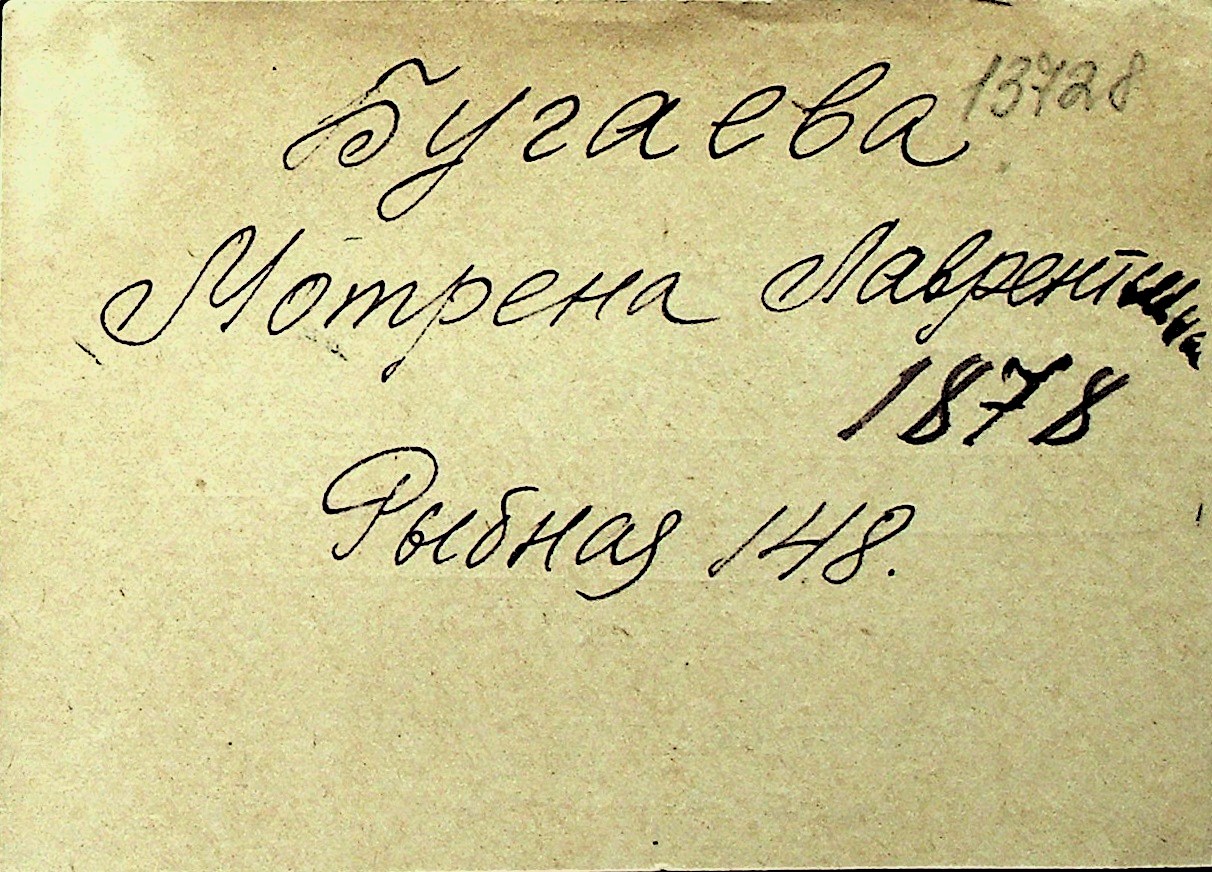 Бугаева 13728
Мотрена
1878
Рыбная 148.